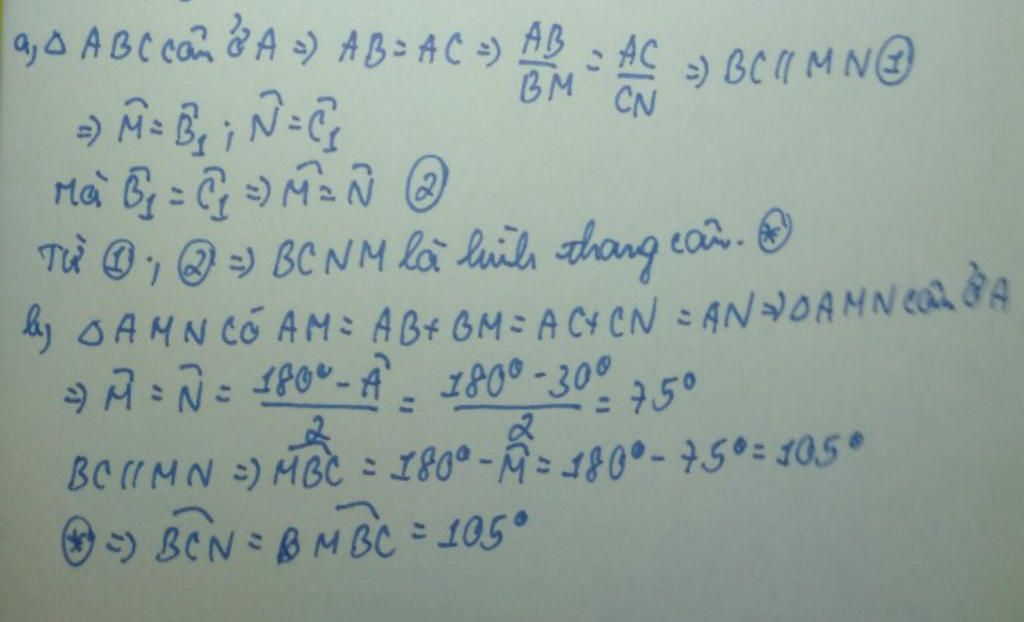 a, △ ABC cân ở A => AB = AC => AB/BM = AC/CN => BC // MN ①
=> M̂ = B̂₁ ; N̂ = Ĉ₁
Mà B̂₁ = Ĉ₁ => M̂ = N̂ ②
Từ ① ; ② => BCNM là hình thang cân. ⊛
b, △ AMN có AM = AB + BM = AC + CN = AN => △ AMN cân ở A
=> M̂ = N̂ = (180° - Â)/2 = (180° - 30°)/2 = 75°
BC // MN => M̂BC = 180° - M̂ = 180° - 75° = 105°
⊛ => B̂CN = B M̂BC = 105°